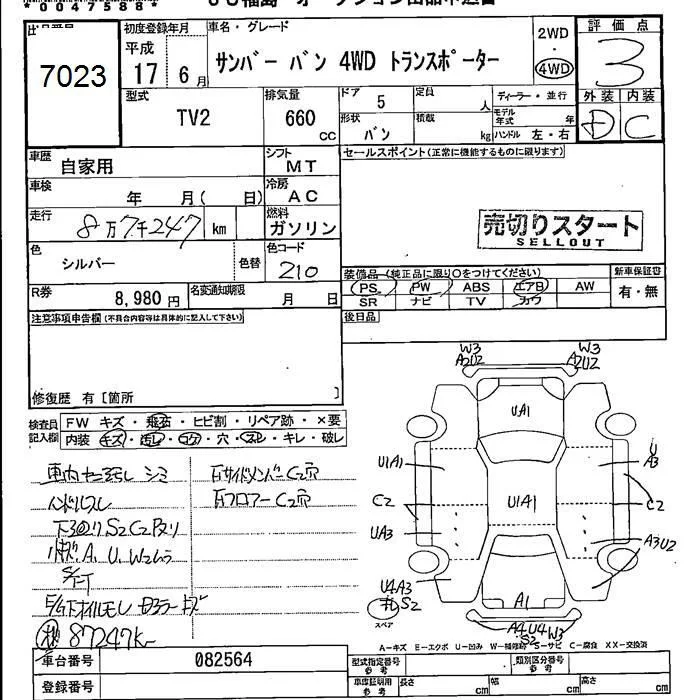 *0047588*
JU福島 オークション出品申込書
出品番号
7023
初度登録年月
平成 17年 6月
車名・グレード
サンバー バン 4WD トランスポーター
2WD
・
4WD
評価点
3
型式
TV2
排気量
660 cc
ドア
5
定員
人
ディーラー・並行
モデル年式 年
外装 内装
D C
形状
バン
積載
kg
ハンドル 左・右
車歴
自家用
シフト
MT
セールスポイント(正常に機能するものに限ります)
車検
年 月( 日)
冷房
AC
走行
8万7千247 km
燃料
ガソリン
売切りスタート
SELLOUT
色
シルバー
色替
色コード
210
装備品(純正品に限り○をつけてください)
新車保証書
PS PW ABS エアB AW
SR ナビ TV カワ
有・無
R券
8,980 円
名変通知期限
月 日
後日品
注意事項申告欄(不具合内容等は具体的に記入して下さい)
修復歴 有[箇所 ]
検査員記入欄
FW キズ・飛石・ヒビ割・リペア跡・×要
内装 キズ・汚れ・コゲ・穴・スレ・キレ・破レ
車内ヤニ汚れ シミ
ハンドルスレ
下回りS2C2サビ
小キズA.U.W2ムラ
右サイドメンバーC2穴
右フロアーC2穴
87247K
W3
A2U2
W3
A2U2
UA1
U1A1
U
A3
C2
U1A1
C2
UA3
A3U2
U4A3
S2
スペア
A1
A4U4W3
S2
A-キズ E-エクボ U-凹み W-補修跡 S-サビ C-腐食 XX-交換済
車台番号
082564
型式指定番号 参考
類別区分番号 参考
登録番号
車庫証明用 参考
長さ cm
幅 cm
高さ cm